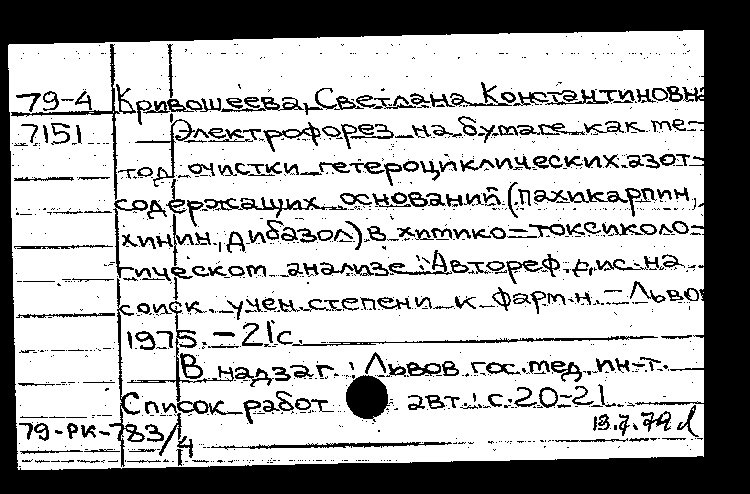 79-4 Кривошеева, Светлана Константиновна
7151 Электрофорез на бумаге как ме-
тод очистки гетероциклических азот-
содержащих оснований (пахикарпин,
хинин, дибазол) в химико-токсиколо-
гическом анализе: Автореф. дис. на
соиск. учен. степени к. фарм. н. - Львов
1975. - 21 с.
В надзаг.: Львов. гос. мед. ин-т.
Список работ авт.: с. 20-21
79-РК-783/4